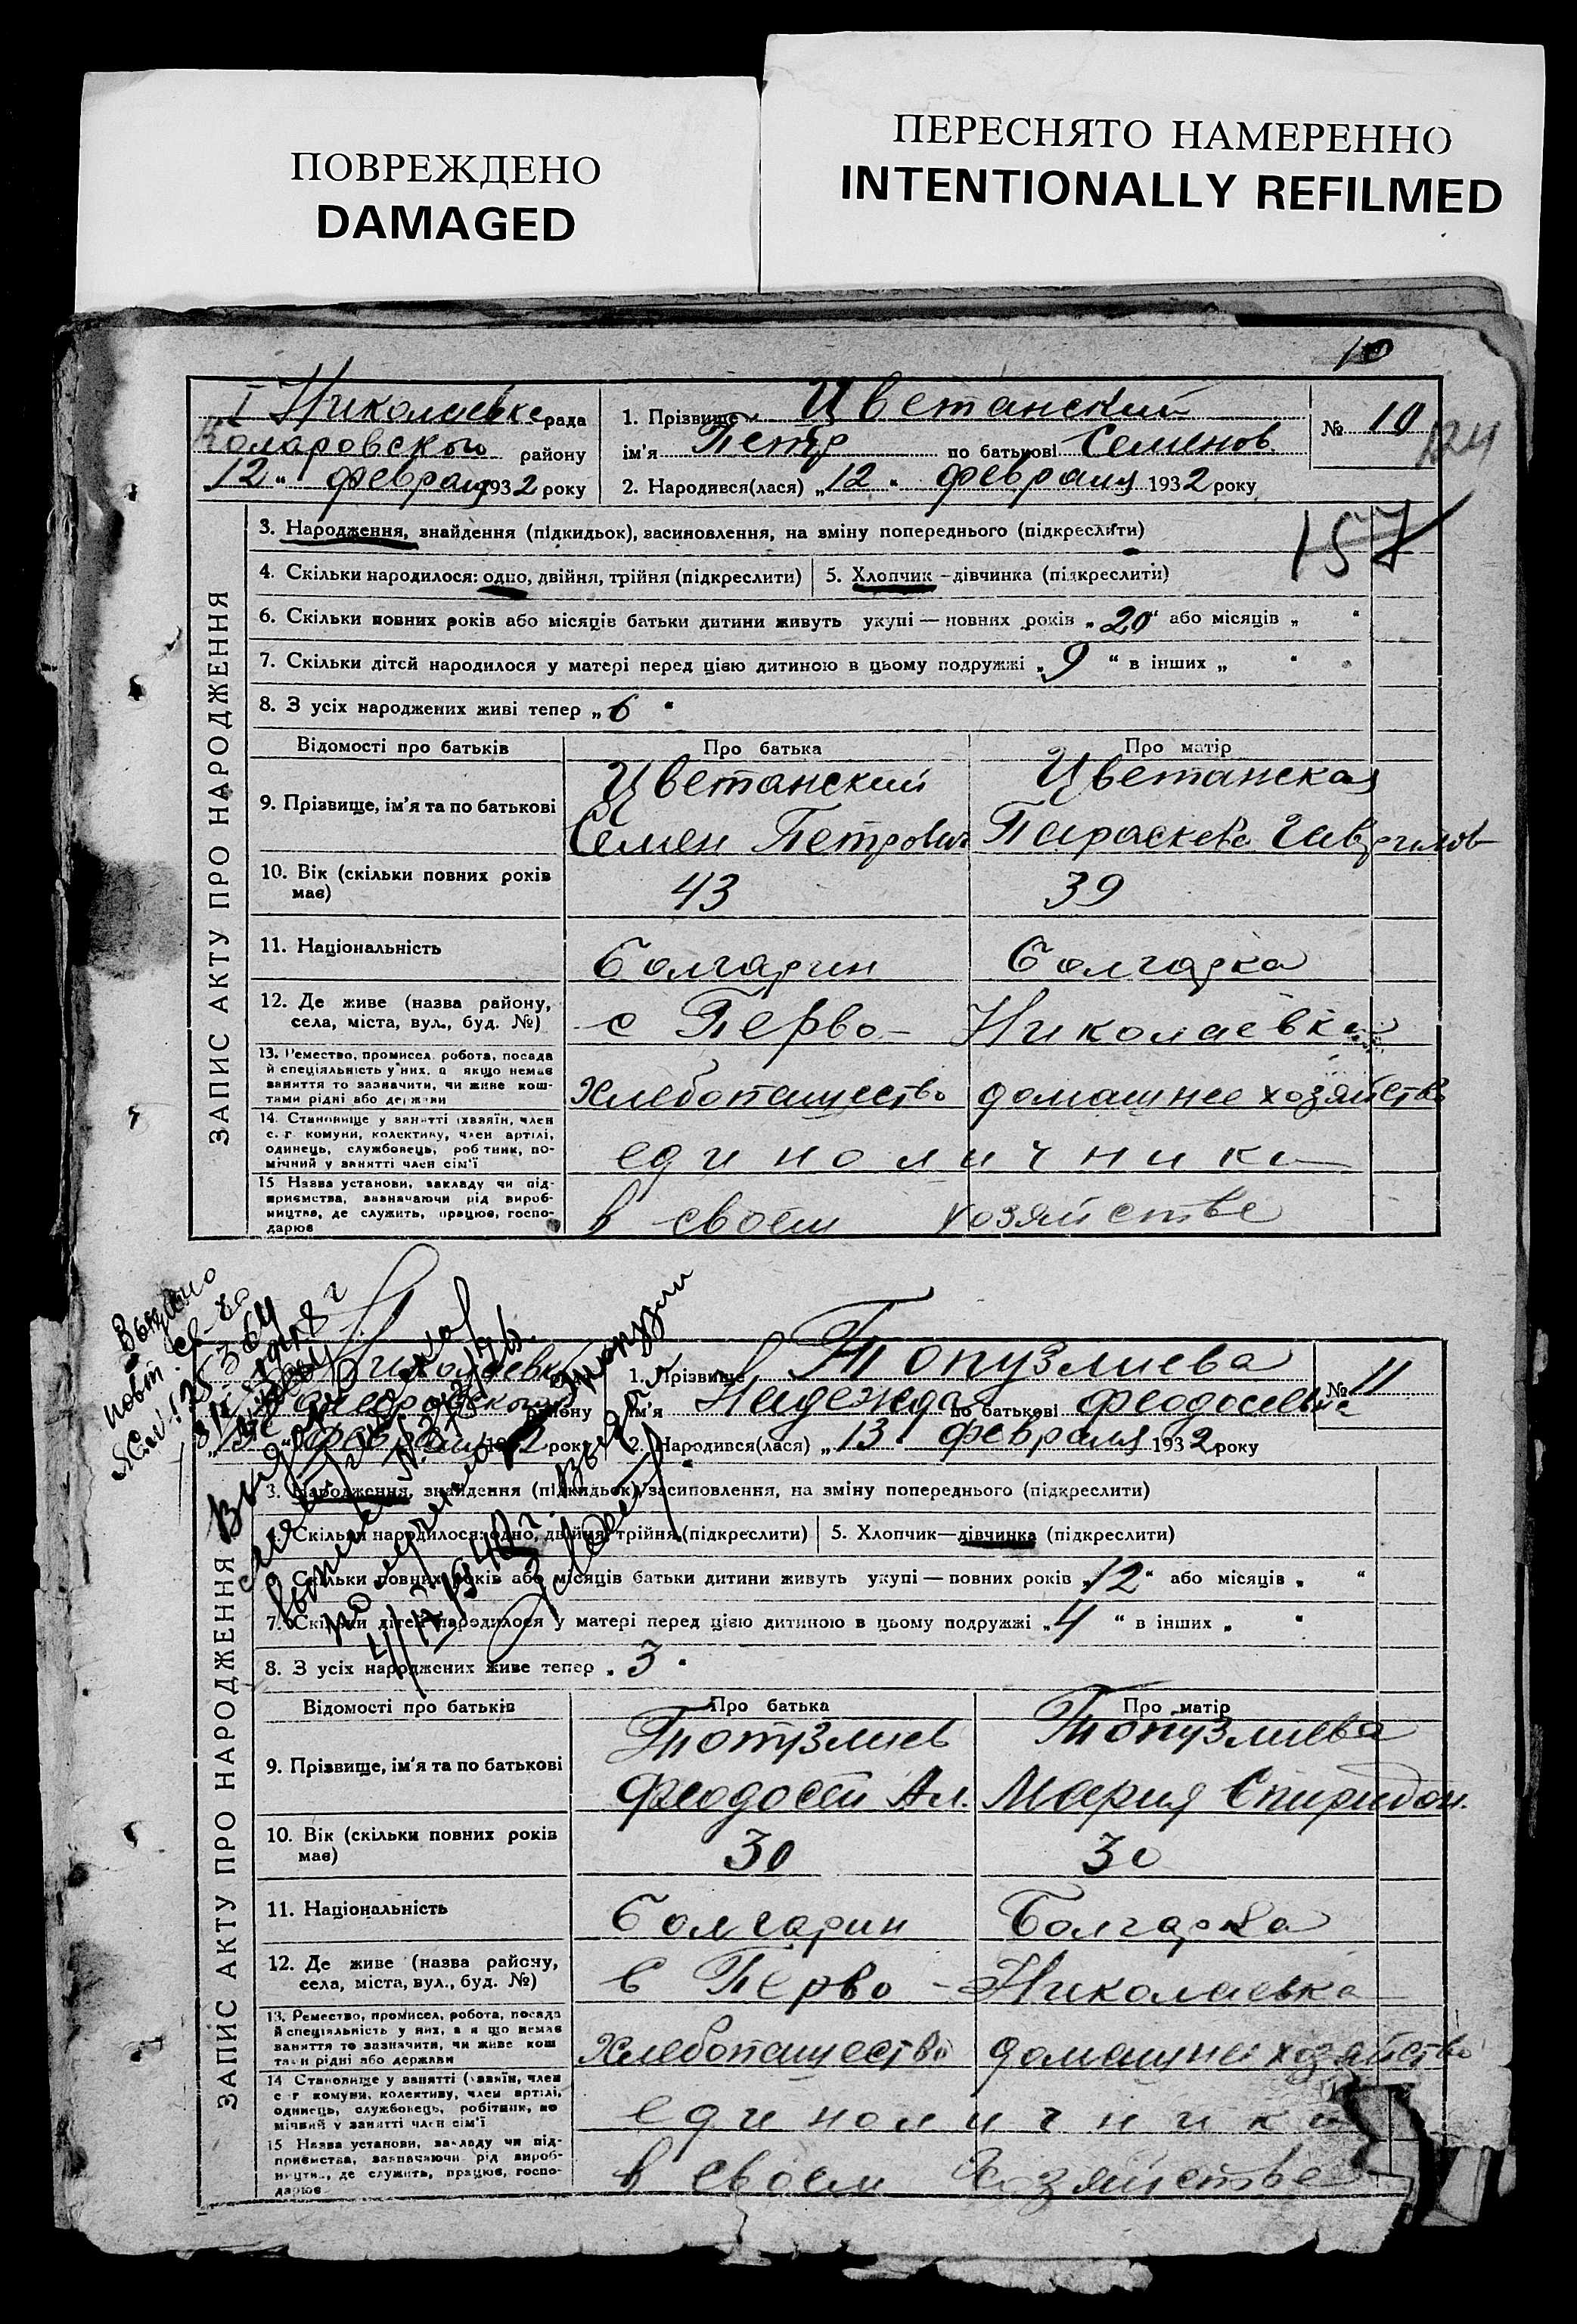 ПОВРЕЖДЕНО
DAMAGED
ПЕРЕСНЯТО НАМЕРЕННО
INTENTIONALLY REFILMED
10
ЗАПИС АКТУ ПРО НАРОДЖЕННЯ
I Николаевка рада
Коларовского району
12 " февраля 1932 року
1. Прізвище Цветанский
ім'я Петр по батькові Семенов.
2. Народився(лася) „12 " февраля 1932 року
№ 10
124
157
3. Народження, знайдення (підкидьок), засиновлення, на зміну попереднього (підкреслити)
4. Скільки народилося: одно, двійня, трійня (підкреслити) 5. Хлопчик – дівчинка (підкреслити)
6. Скільки повних років або місяців батьки дитини живуть укупі — повних років „20" або місяців „ "
7. Скільки дітей народилося у матері перед цією дитиною в цьому подружжі „9 " в інших „ "
8. З усіх народжених живі тепер „6 "
Відомості про батьків Про батька Про матір
9. Прізвище, ім'я та по батькові
Цветанский Цветанская
Семен Петрович Параскева Гаврилов
10. Вік (скільки повних років має) 43 39
11. Національність Болгарин Болгарка
12. Де живе (назва району, села, міста, вул., буд. №) с Перво- Николаевка
13. Ремество, промисел, робота, посада й спеціяльність у них, а якщо немає заняття то зазначити, чи живе коштами рідні або держави
Хлебопашество домашнее хозяйство
14. Становище у занятті (хазяїн, член с.-г. комуни, колективу, член артілі, одинець, службовець, робітник, помічний у занятті член сім'ї
единоличники
15 Назва установи, закладу чи підприємства, зазначаючи рід виробництва, де служить, працює, господарює
в своем хозяйстве
Выдано
повт. св-во
ЗАПИС АКТУ ПРО НАРОДЖЕННЯ
Николаевка
району
февраля року
1. Прізвище Топузлиева
ім'я Надежда по батькові Феодосеевна
2. Народився(лася) „13 " февраля 1932 року
№ 11
3. Народження, знайдення (підкидьок), засиновлення, на зміну попереднього (підкреслити)
Скільки народилося: одно, двійня, трійня (підкреслити) 5. Хлопчик—дівчинка (підкреслити)
Скільки повних років або місяців батьки дитини живуть укупі — повних років „12 " або місяців „ "
7. Скільки дітей народилося у матері перед цією дитиною в цьому подружжі „4 " в інших „ "
8. З усіх народжених живе тепер „3 "
Відомості про батьків Про батька Про матір
9. Прізвище, ім'я та по батькові
Топузлиев Топузлиева
Феодосей Ал. Мария Спиридон.
10. Вік (скільки повних років має) 30 30
11. Національність Болгарин Болгарка
12. Де живе (назва району, села, міста, вул., буд. №) с Перво - Николаевка
13. Ремество, промисел, робота, посада й спеціяльність у них, а якщо немає заняття то зазначити, чи живе коштами рідні або держави
Хлебопашество домашнее хозяйство
14 Становище у занятті (хазяїн, член с г комуни, колективу, член артілі, одинець, службовець, робітник, помічний у занятті член сім'ї
единоличники
15 Назва установи, закладу чи підприємства, зазначаючи рід виробництва, де служить, працює, господарює
в своем хозяйстве